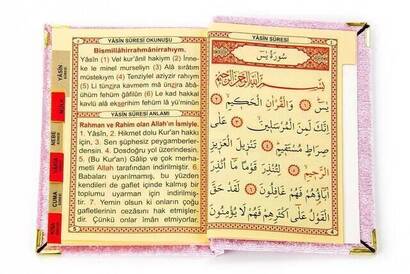 YÂSİN SÛRESİ OKUNUŞU
Bismillâhirrahmânirrahıym.
Yâsîn (1) Vel kur'ânil hakiym (2) İnne-
ke le minel murseliyn (3) Alâ sırâtım
müstekıym (4) Tenziylel aziyzir rahıym
(5) Li tünzira kavmem mâ ünzira âbâ-
ühüm fehüm ğâfilûn (6) Le kad hakkal
kavlü alâ ekserihim fehüm lâ yü'minûn
YÂSİN SÛRESİ ANLAMI
Rahman ve Rahim olan Allah'ın İsmiyle.
1. Yâsîn, 2. Hikmet dolu Kur'an hakkı
için, 3. Sen şüphesiz peygamberler-
densin. 4. Dosdoğru yol üzerindesin.
5. (Bu Kur'an) Gâlip ve çok merha-
metli Allah tarafından indirilmiştir. 6.
Babaları uyarılmamış, bu yüzden
kendileri de gaflet içinde kalmış bir
toplumu uyarman için indirilmiş-
tir. 7. Yemin olsun ki onların çoğu
gafletlerinin cezasını hak etmişler-
dir. Çünkü onlar îman etmiyorlar.
YÂSİN
NEBE
CUMA
YÂSİN SÛRESİ
سُورَةُ يٰسٓ
بِسْمِ اللّٰهِ الرَّحْمٰنِ الرَّحِيمِ
يٰسٓ ﴿١﴾ وَالْقُرْاٰنِ الْحَكِيمِ ﴿٢﴾
اِنَّكَ لَمِنَ الْمُرْسَلِينَ ﴿٣﴾ عَلٰى
صِرَاطٍ مُسْتَقِيمٍ ﴿٤﴾ تَنْزِيلَ الْعَزِيزِ
الرَّحِيمِ ﴿٥﴾ لِتُنْذِرَ قَوْمًا مَٓا اُنْذِرَ
اٰبَٓاؤُ۬هُمْ فَهُمْ غَافِلُونَ ﴿٦﴾ لَقَدْ حَقَّ
الْقَوْلُ عَلٰٓى اَكْثَرِهِمْ فَهُمْ لَا يُؤْمِنُونَ